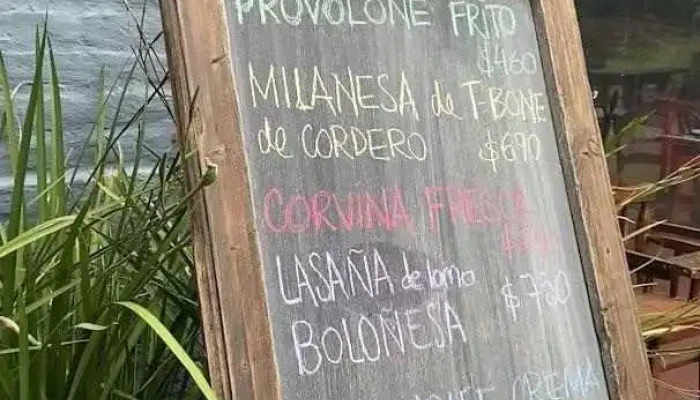 PROVOLONE FRITO
$460
MILANESA de T-BONE
de CORDERO $690
CORVINA FRESCA
LASAÑA de lomo $750
BOLOÑESA
CREMA